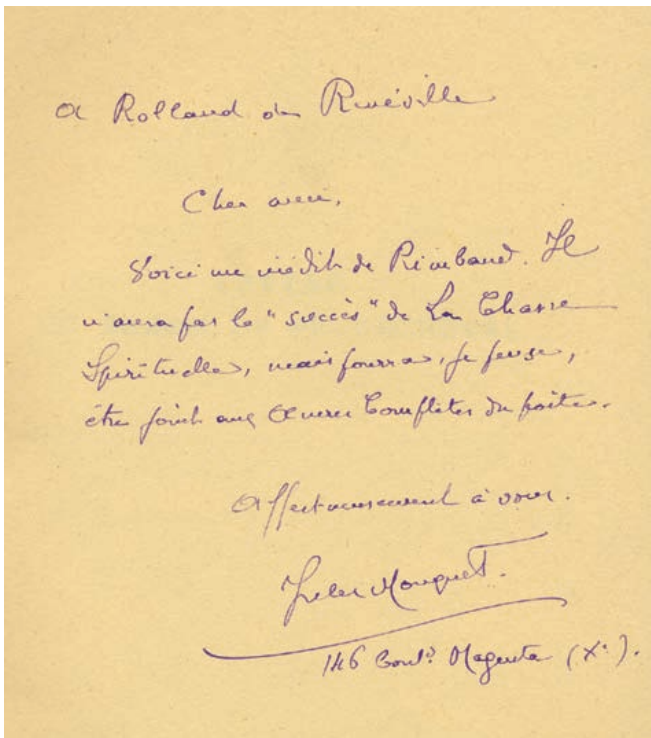 A Rolland de Renéville
Cher ami,
Voici un inédit de Rimbaud. Il
n'aura pas le "succès" de La Chasse
Spirituelle, mais pourra, je pense,
être joint aux Œuvres Complètes du poète.
Affectueusement à vous.
Jules Mouquet.
146 Boulᵈ Magenta (Xᵉ).